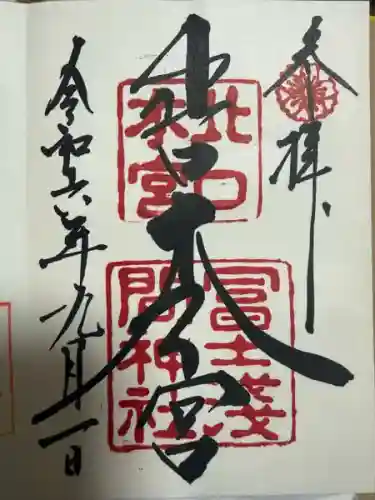 奉拝
北口本宮
北口
本宮
冨士浅
間神社
令和六年九月一日